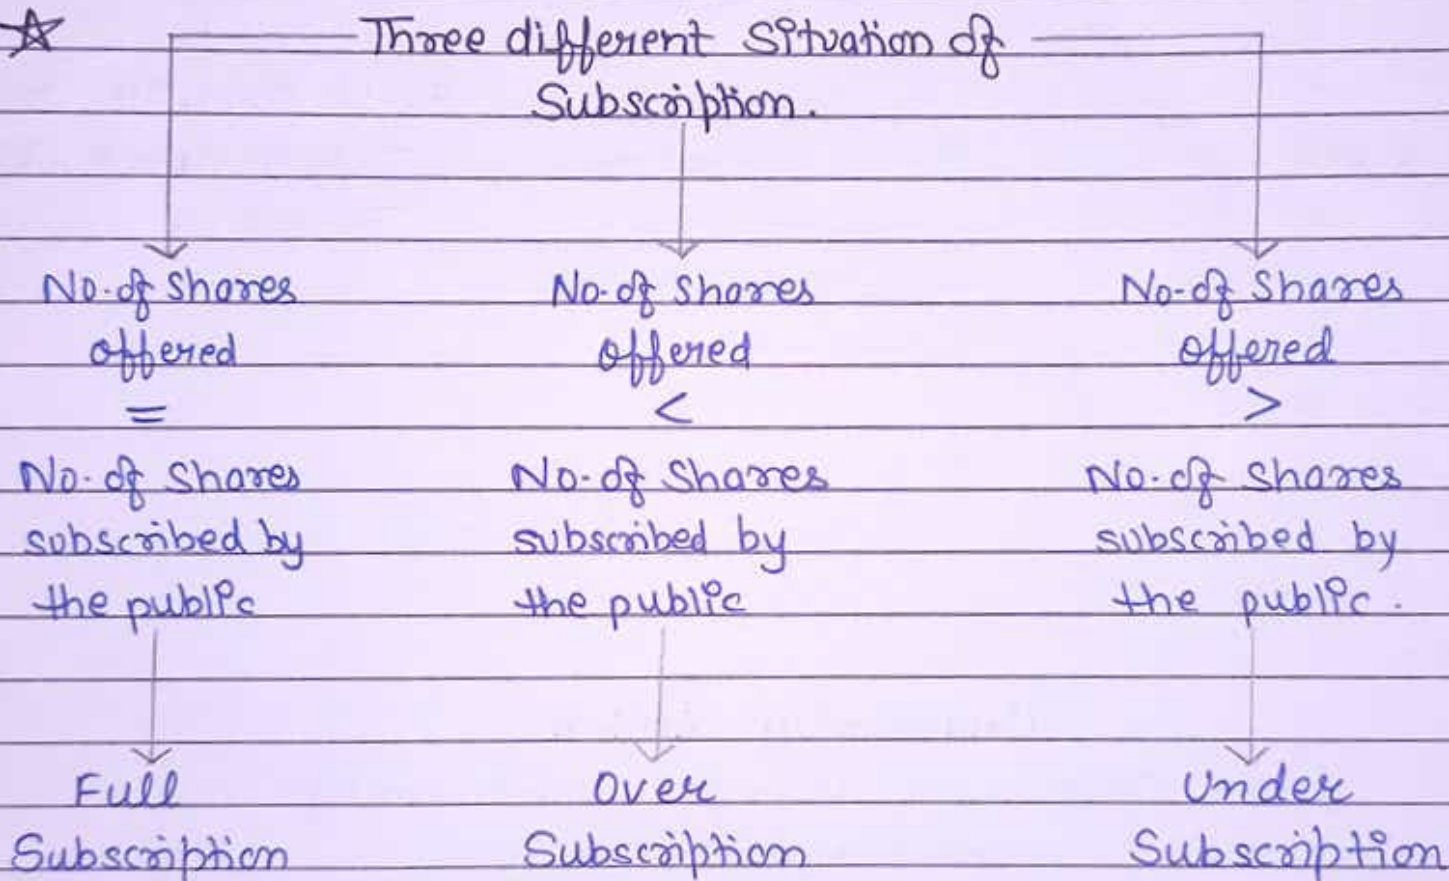 Three different Situation of
Subscription.
No. of Shares
offered
=
No. of Shares
subscribed by
the public
Full
Subscription
No. of Shares
offered
<
No. of Shares
subscribed by
the public
Over
Subscription
No. of Shares
offered
>
No. of Shares
subscribed by
the public.
Under
Subscription